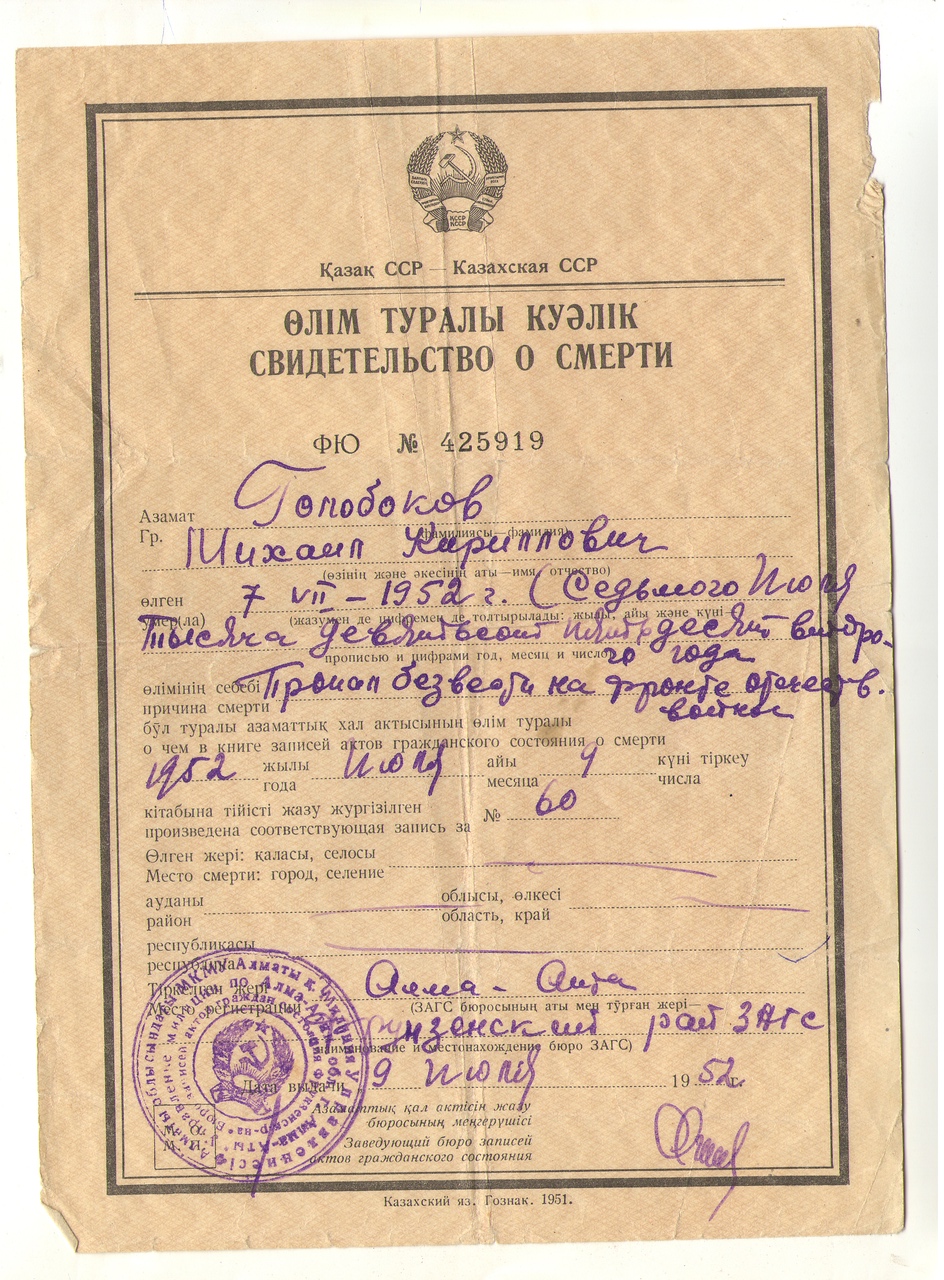 Қазақ ССР — Казахская ССР
ӨЛІМ ТУРАЛЫ КУӘЛІК
СВИДЕТЕЛЬСТВО О СМЕРТИ
ФЮ № 425919
Азамат
Гр. Голобоков
(фамилиясы, фамилия)
Михаил Кириллович
(өзінің және әкесінің аты—имя, отчество)
өлген
умер(ла) 7 VII – 1952 г. (Седьмого Июля
(жазумен де цифремен де толтырылады: жылы, айы және күні—
тысяча девятьсот пятьдесят второ-
прописью и цифрами год, месяц и число)
го года
өлімінің себебі
причина смерти Пропал безвести на фронте отечеств.
войны
бұл туралы азаматтық хал актысының өлім туралы
о чем в книге записей актов гражданского состояния о смерти
1952 жылы Июля айы 9 күні тіркеу
года месяца числа
кітабына тійісті жазу жургізілген
произведена соответствующая запись за № 60
Өлген жері: қаласы, селосы
Место смерти: город, селение
ауданы облысы, өлкесі
район область, край
республикасы
республика
Тіркелген жері
Место регистрации Алма-Ата
(ЗАГС бюросының аты мен тұрған жері—
Фрунзенский рай ЗАГС
наименование и местонахождение бюро ЗАГС)
Дата выдачи 9 Июля 1952 г.
Азаматтық қал актісін жазу
бюросының меңгерушісі
М. О.
М. П.
Заведующий бюро записей
актов гражданского состояния
Казахский яз. Гознак. 1951.